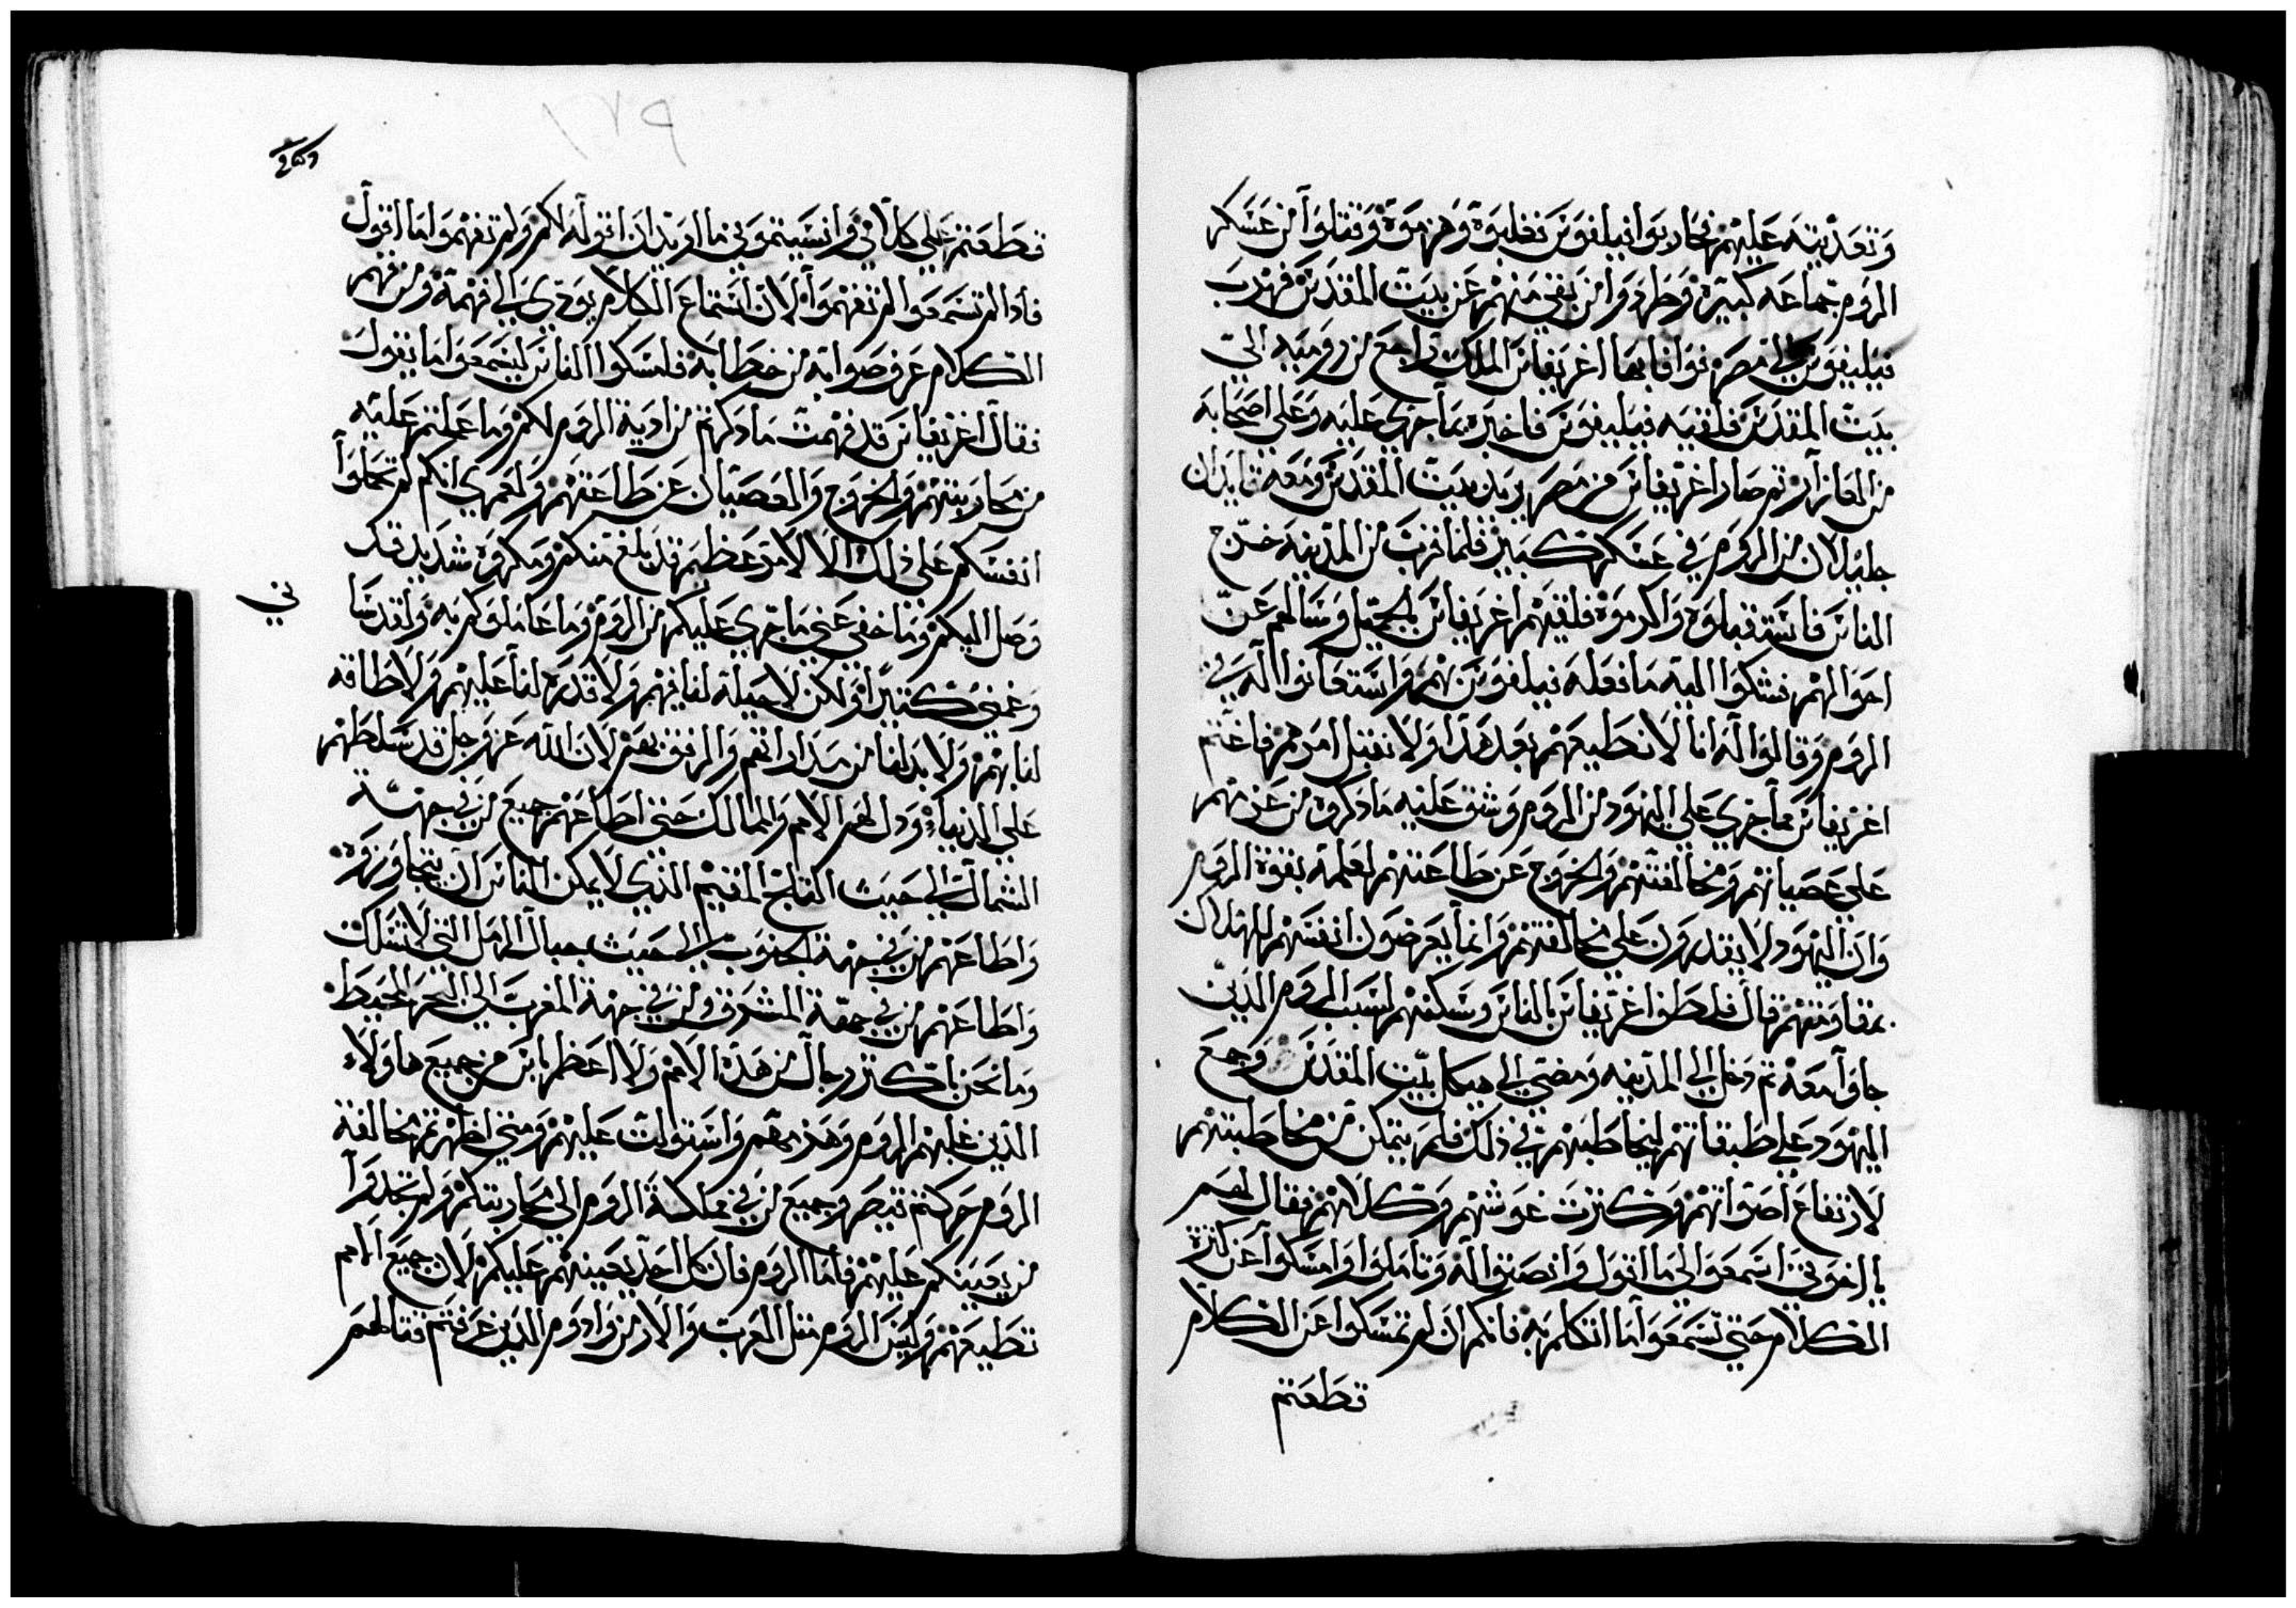 وتعديته عليهم فحاربوا فيلفوس فغلبوه وهزموه وقتلوا من عسكر
الروم جماعه كبيره وطردوا من بقي منهم عن بيت المقدس فهرب
فيليفوس الي مصر فوافا بها اغريفاس الملك راجع من روميه الي
بيت المقدس فلقيه فيليفوس فاخبره بما جري عليه وعلي اصحابه
من العازار ثم صار اغريفاس من مصر يريد بيت المقدس ومعه قايدان
جليلان من الروم في عسكر كبير فلما قرب من المدينه خرج
الناس فاستقبلوه واكرموه فلقيهم اغريفاس بالجميل وسالهم عن
احوالهم فشكوا اليه ما فعله فيلفوس بهم واستعانوا اله في
الروم وقالوا له انا لا نطيعهم بعد هذا ولا نقبل امرهم فاغتم
اغريفاس مما جري علي اليهود من الروم وشق عليه ما دكروه من عزمهم
علي عصيانهم ومخالفتهم والخروج عن طاعتهم لعلمه بقوة الروم
وان اليهود لا يقدرون علي مخالفتهم وانما يعرضون انفسهم للهلاك
بمقاومتهم قال فلطف اغريفاس بالناس وسكنهم لسبب الروم الذين
جاوا معه ثم دخل الي المدينه ومضي الي هيكل بيت المقدس وجمع
اليهود علي طبقاتهم ليخاطبهم في ذلك فلم يتمكن من مخاطبتهم
لارتفاع اصواتهم وكثرت غوشهم وكلامهم فقال لهم
يا اخوتي اسمعوا الي ما اقول وانصتوا له وتاملوا وامسكوا عن كثرة
الكلام حتي تسمعوا ما اتكلم به فانكم ان لم تمسكوا عن الكلام
قطعتم
قطعتم علي كلامي وانسيتموني ما اريد ان اقوله لكم ولم تفهموا ما اقول
فادا لم تسمعوا لم تفهموا لان استماع الكلام يودي الي فهمه ومن فهم
الكلام عرف صوابه من خطابه فامسكوا الناس ليسمعوا ما يقول
فقال اغريفاس قد فهمت ما دكرتم من ادية الروم لكم وما عملتم عليه
من محاربتهم والخروج والعصيان عن طاعتهم ولعمري انكم لم تحملوا
انفسكم علي ذلك الا لامر عظيم قد بلغ منكم ومكروه شديد قد
وصل اليكم وما خفي عني ما جري عليكم من الروم وما عاملوكم به ولقد سا
ني
وغمني كثيرا ولكن لا حيلة لنا فيهم ولا قدره لنا عليهم ولا طاقه
لنا بهم ولا بد لنا من مداراتهم والرفق بهم لان الله عز وجل قد سلطهم
علي الدنيا ودل لهم الامم والممالك حتي اطاعهم جميع من في جهة
الشمال الي حيث الثلج المقيم الذي لا يمكن الناس ان يتجاوزه
واطاعهم من في جهة الجنوب الي حيث جبال الرمل التي لا تسلك
واطاعهم من في جهة المشرق ومن في جهة المغرب الي البحر المحيط
وما نحن باكثر رجال من هذه الامم ولا اعظم باس من جميع هاولاء
الذين غلبهم الروم وهذمهم واستولت عليهم ومتي اظهرتم مخالفة
الروم حركتم قيصر وجميع من في مملكة الروم الي محاربتكم ولم تجدوا
من يعينكم عليهم فاما الروم فان كل احد يعينهم عليكم لان جميع الامم
تطيعهم وليس الروم مثل العرب والارمن وادوم الذين عرفتم قتالهم